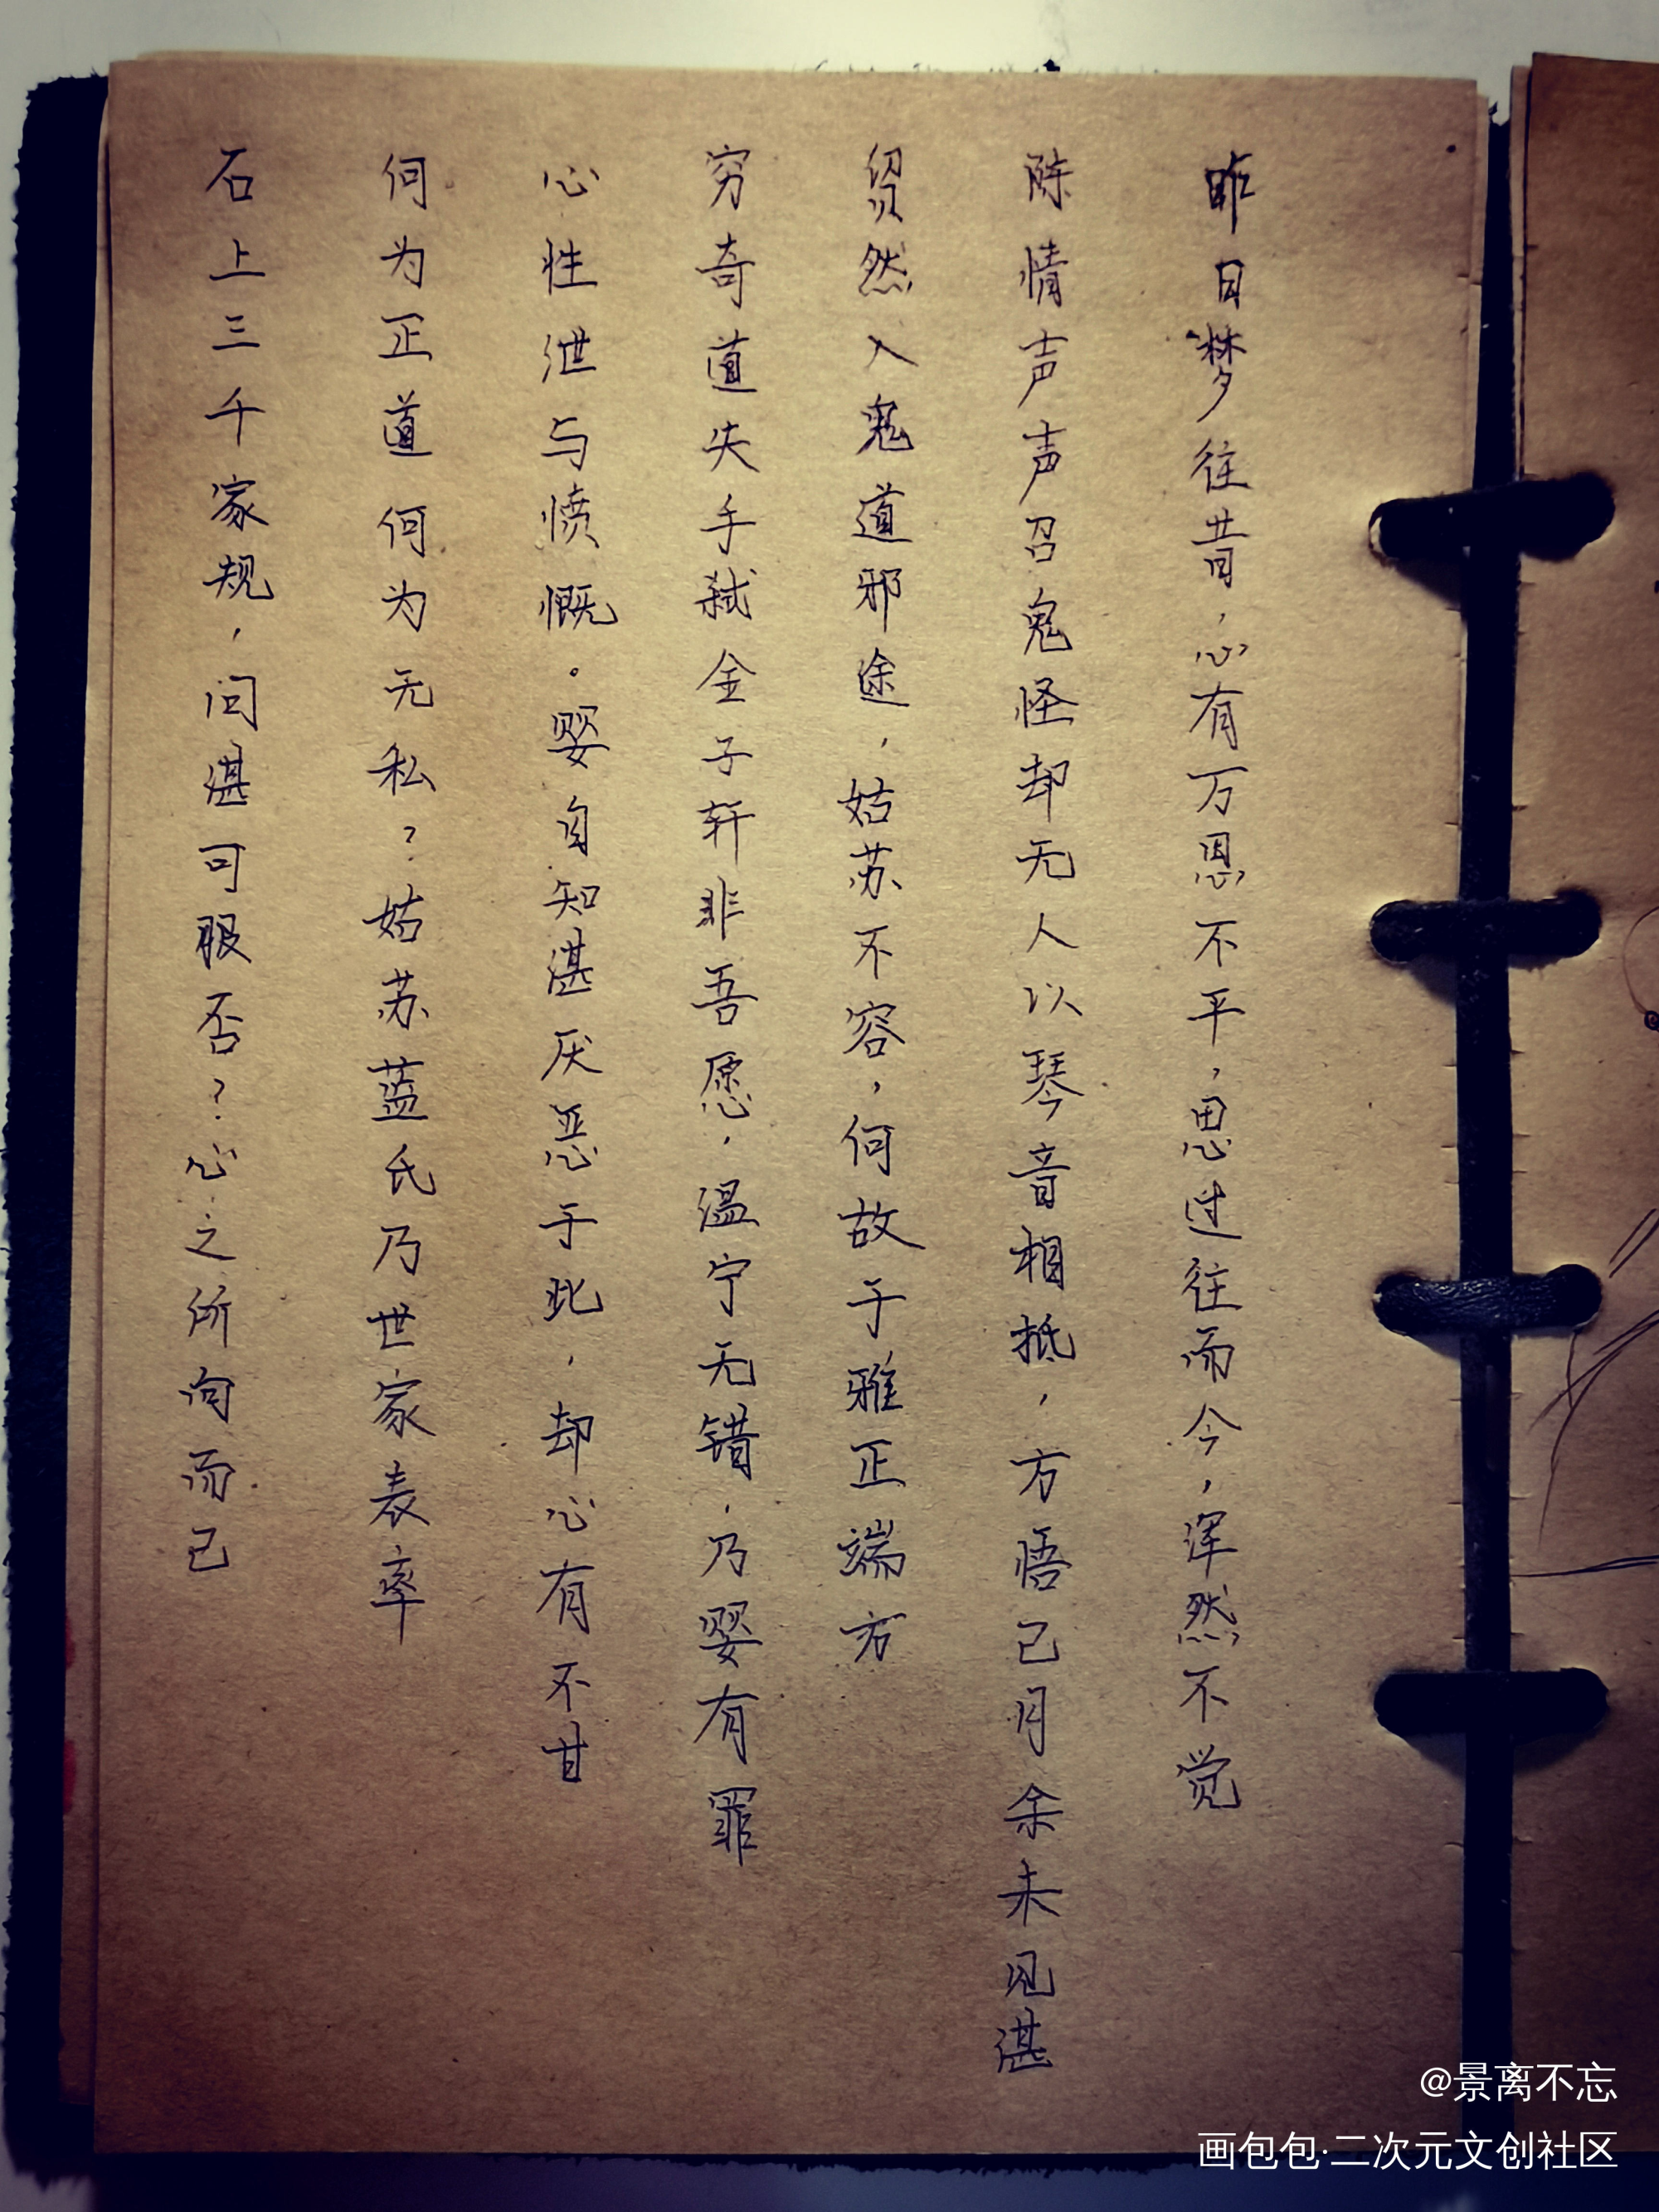 昨日梦往昔，心有万恩不平，思过往而今，浑然不觉
陈情声声召鬼怪却无人以琴音相抵，方悟已月余未见湛
贸然入鬼道邪途，姑苏不容，何故于雅正端方
穷奇道失手弑金子轩非吾愿，温宁无错，乃婴有罪
心性泄与愤慨。婴自知湛厌恶于此，却心有不甘
何为正道何为无私？姑苏蓝氏乃世家表率
石上三千家规，问湛可服否？心之所向而已
@景离不忘
画包包·二次元文创社区